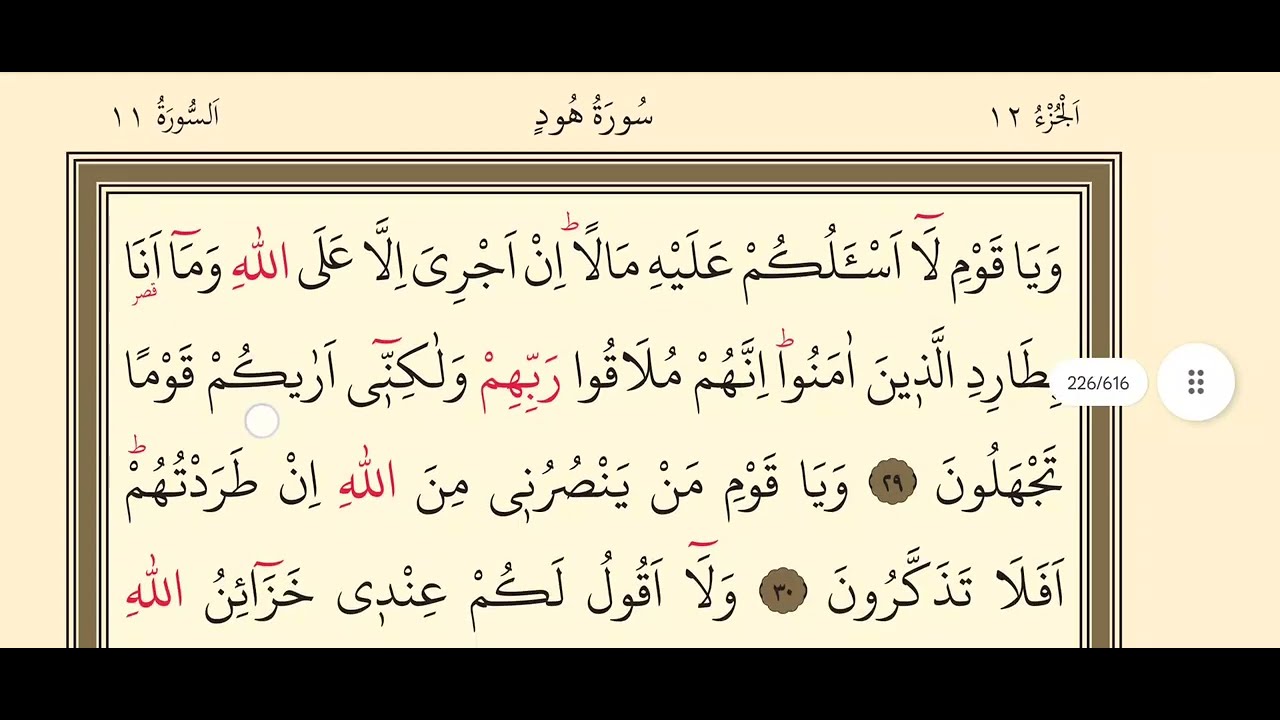 اَلْجُزْءُ ١٢ سُورَةُ هُودٍ اَلسُّورَةُ ١١
وَيَا قَوْمِ لَٓا اَسْـَٔلُكُمْ عَلَيْهِ مَالًاۜ اِنْ اَجْرِىَ اِلَّا عَلَى اللّٰهِ وَمَٓا اَنَا۬
قصر
بِطَارِدِ الَّذٖينَ اٰمَنُواۜ اِنَّهُمْ مُلَاقُوا رَبِّهِمْ وَلٰكِنّٖٓى اَرٰيكُمْ قَوْمًا
226/616
تَجْهَلُونَ ٢٩ وَيَا قَوْمِ مَنْ يَنْصُرُنٖى مِنَ اللّٰهِ اِنْ طَرَدْتُهُمْۜ
اَفَلَا تَذَكَّرُونَ ٣٠ وَلَٓا اَقُولُ لَكُمْ عِنْدٖى خَزَٓائِنُ اللّٰهِ